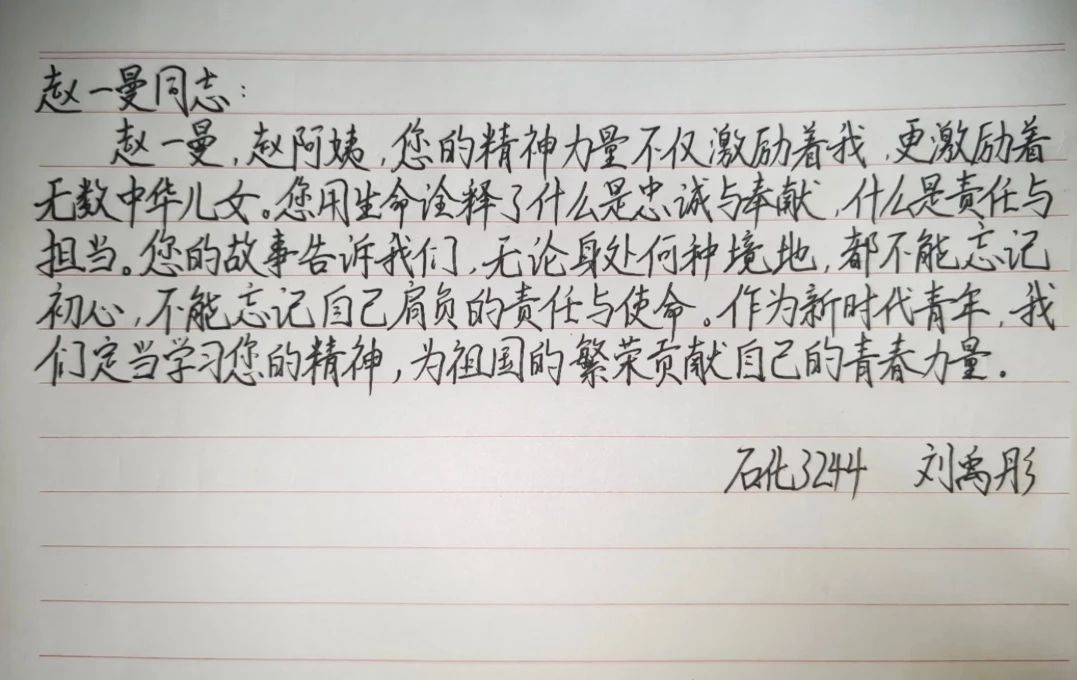 赵一曼同志:
赵一曼,赵阿姨,您的精神力量不仅激励着我,更激励着
无数中华儿女。您用生命诠释了什么是忠诚与奉献,什么是责任与
担当。您的故事告诉我们,无论身处何种境地,都不能忘记
初心,不能忘记自己肩负的责任与使命。作为新时代青年,我
们定当学习您的精神,为祖国的繁荣贡献自己的青春力量.
石化3244 刘禹彤